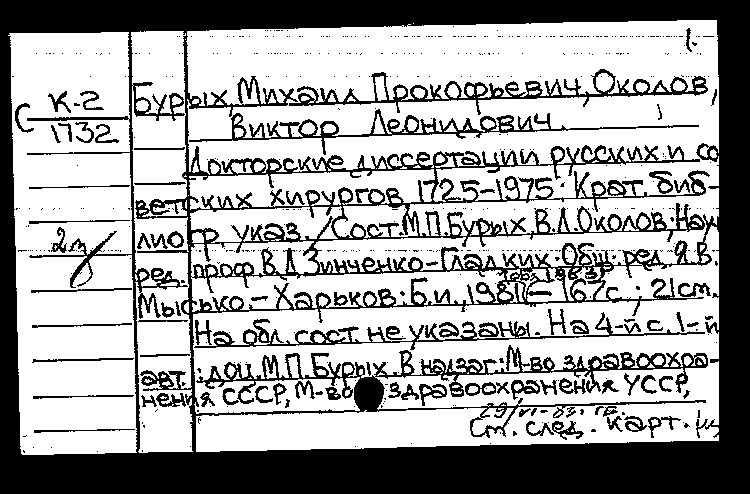 1.
С К-2
1732
2 м
Бурых, Михаил Прокофьевич, Околов,
Виктор Леонидович.
Докторские диссертации русских и со
ветских хирургов, 1725-1975: Крат. биб-
лиогр. указ. / Сост. М.П.Бурых, В.Л.Околов; Науч
ред. проф. В.Д.Зинченко-Гладких; Общ. ред. Я.В.
Мысько. - Харьков: Б.и., 1981 - 167с.; 21см.
На обл. сост. не указаны. На 4-й с. 1-й
авт.: доц. М.П.Бурых. В надзаг: М-во здравоохра-
нения СССР, М-во здравоохранения УССР,
29/VI-83.
См. след. карт.